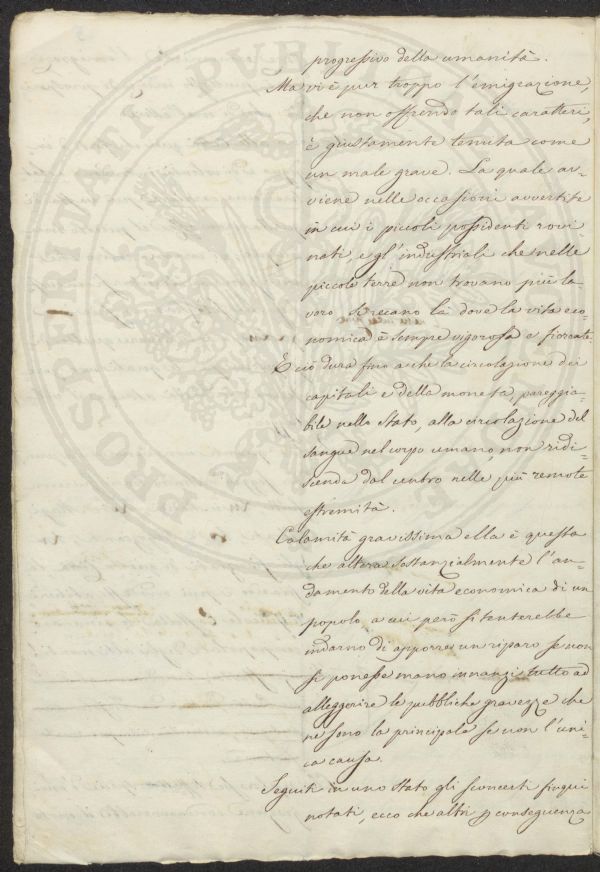 progressivo della umanità.
Ma vi è pur troppo l'emigrazione,
che non offrendo tali caratteri,
è giustamente temuta come
un male grave. La quale av-
viene nelle occasioni avvertite
in cui i piccoli possidenti rovi-
nati, e gl'industriali che nelle
piccole terre non trovano più la-
voro si recano là dove la vita eco-
nomica è sempre vigorosa e fiorente.
E ciò dura fino a che la circolazione dei
capitali e della moneta, pareggia-
bile nello Stato, alla circolazione del
sangue nel corpo umano non ridi-
scenda dal centro nelle più remote
estremità.
Calamità gravissima ella è questa
che altera sostanzialmente l'an-
damento della vita economica di un
popolo a cui però si tenterebbe
indarno di apporre un riparo se non
si ponesse mano innanzi tutto ad
alleggerire le pubbliche gravezze che
ne sono la principale se non l'uni-
ca causa.
Seguiti in uno Stato gli sconcerti finqui
notati, ecco che altri p conseguenza
PROSPERITATI PUBLICAE